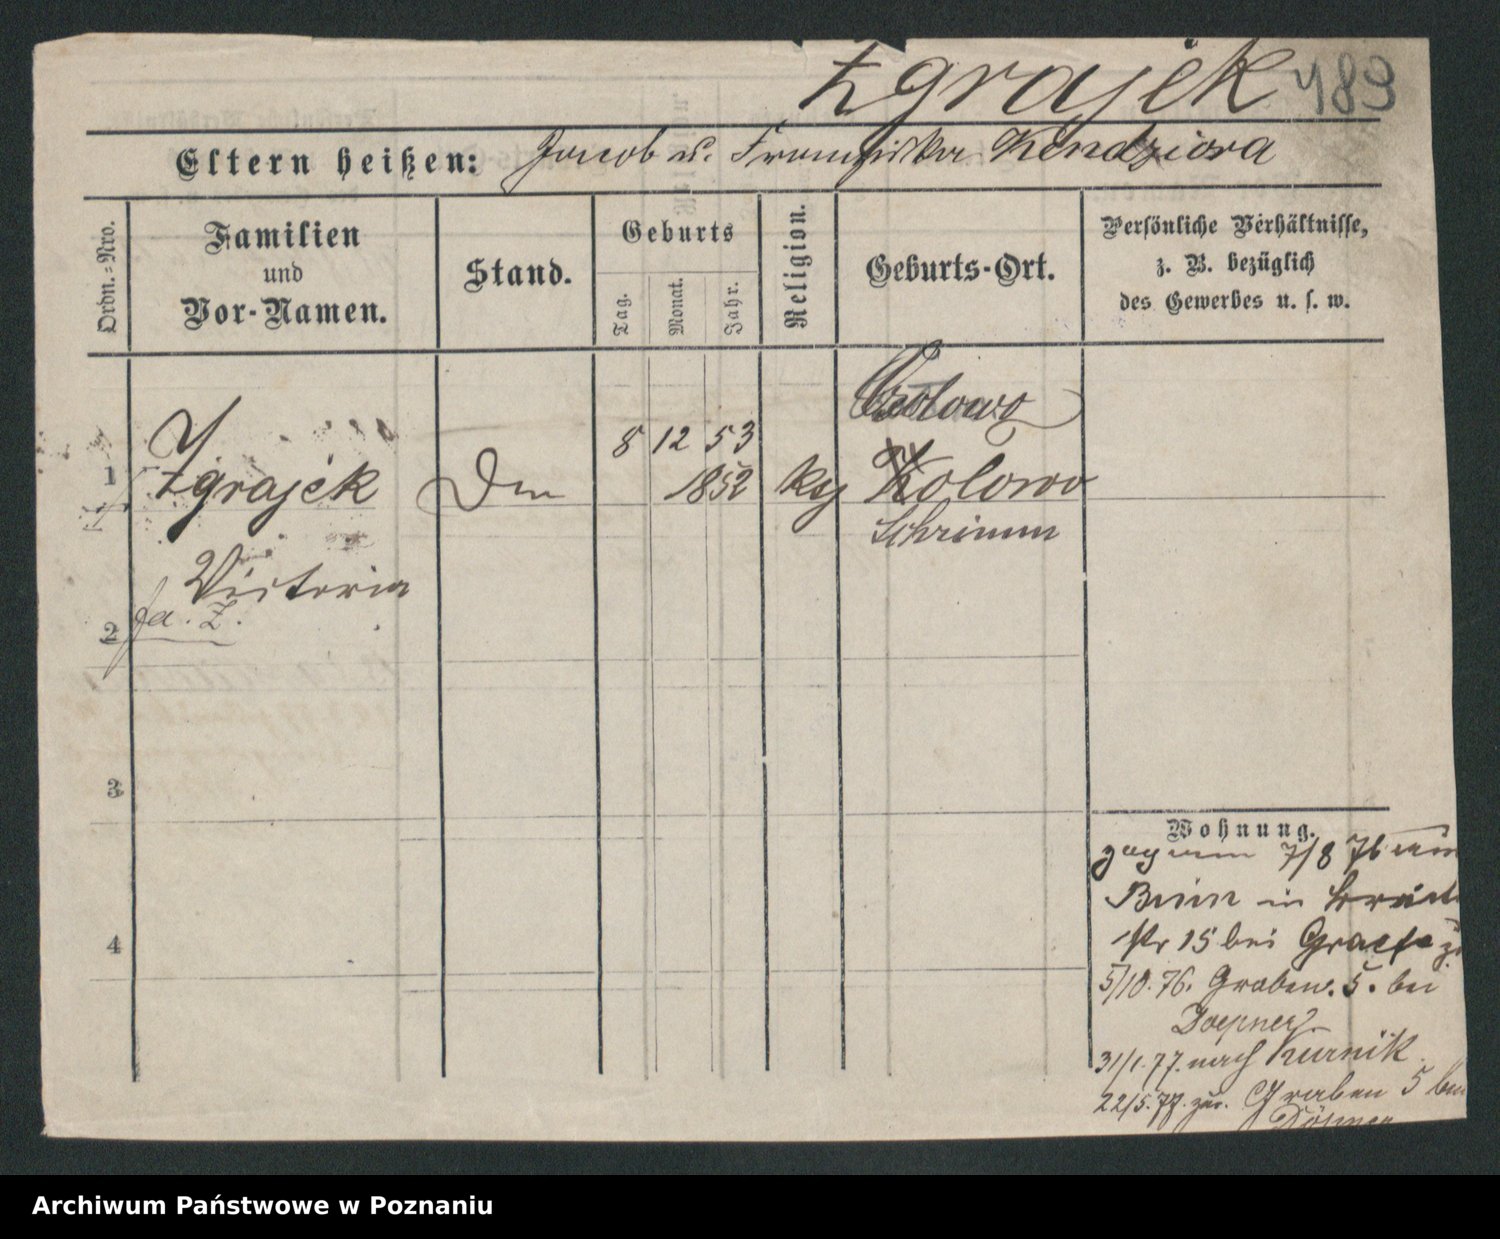 Zgrajek 489
Eltern heißen: Jacob u. Franziska Kendziora
Ordn.=Nro.
Familien
und
Vor-Namen.
Stand.
Geburts
Tag.
Monat.
Jahr.
Religion.
Geburts-Ort.
Persönliche Verhältnisse,
z. B. bezüglich
des Gewerbes u. s. w.
8 12 53
1 Zgrajek 1852 Kolowo
Schrimm
Victoria
2
3
4
Wohnung.
zog 7/8 76
in
Nr 15 bei Graefe
5/10. 76. Graben. 5. bei
31/1. 77. nach Kurnik.
22/5. 77. zur. Graben 5 bei
Döpner
Archiwum Państwowe w Poznaniu